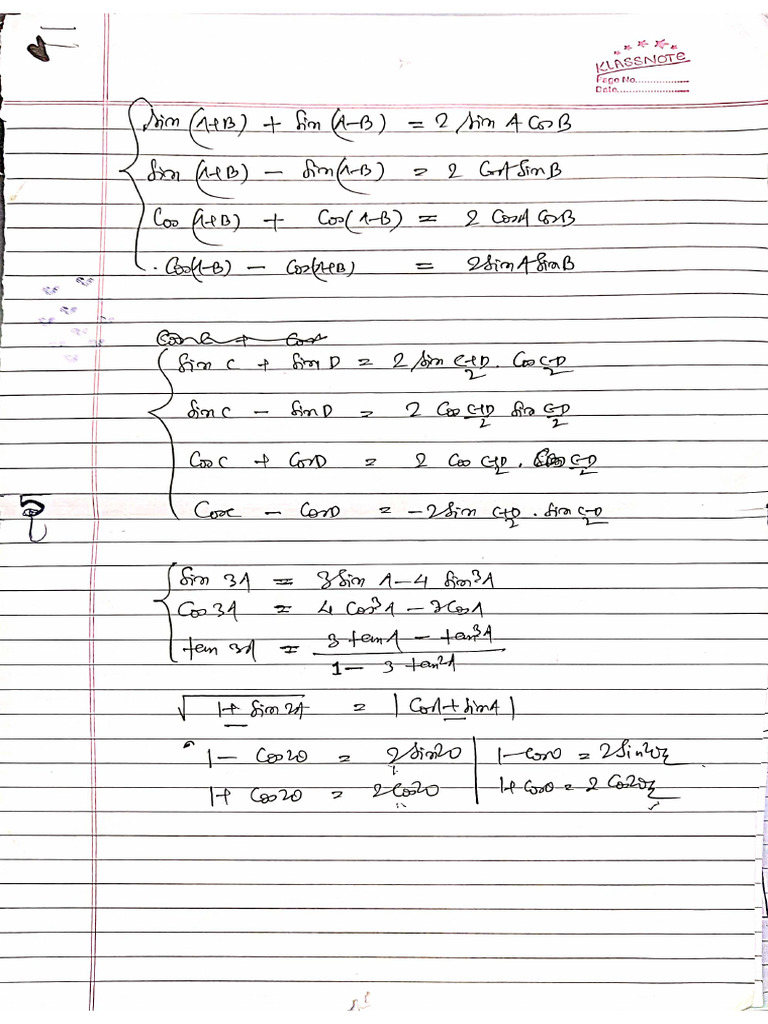 KLASSNOTE
Page No.
Date
Sin (A+B) + Sin (A-B) = 2 Sin A Cos B
Sin (A+B) - Sin (A-B) = 2 CosA Sin B
Cos (A+B) + Cos (A-B) = 2 CosA Cos B
Cos(A-B) - Cos(A+B) = 2 Sin A Sin B
Sin C + Sin D = 2 Sin (C+D)/2 . Cos (C-D)/2
Sin C - Sin D = 2 Cos (C+D)/2 Sin (C-D)/2
Cos C + Cos D = 2 Cos (C+D)/2 . Cos (C-D)/2
Cos C - Cos D = -2 Sin (C+D)/2 . Sin (C-D)/2
Sin 3A = 3 Sin A - 4 Sin³A
Cos 3A = 4 Cos³A - 3 CosA
tan 3A = (3 tanA - tan³A)/(1 - 3 tan²A)
√(1+ Sin 2A) = | CosA + SinA |
1 - Cos2θ = 2 Sin²θ | 1 - Cosθ = 2 Sin²θ/2
1 + Cos2θ = 2 Cos²θ | 1 + Cosθ = 2 Cos²θ/2